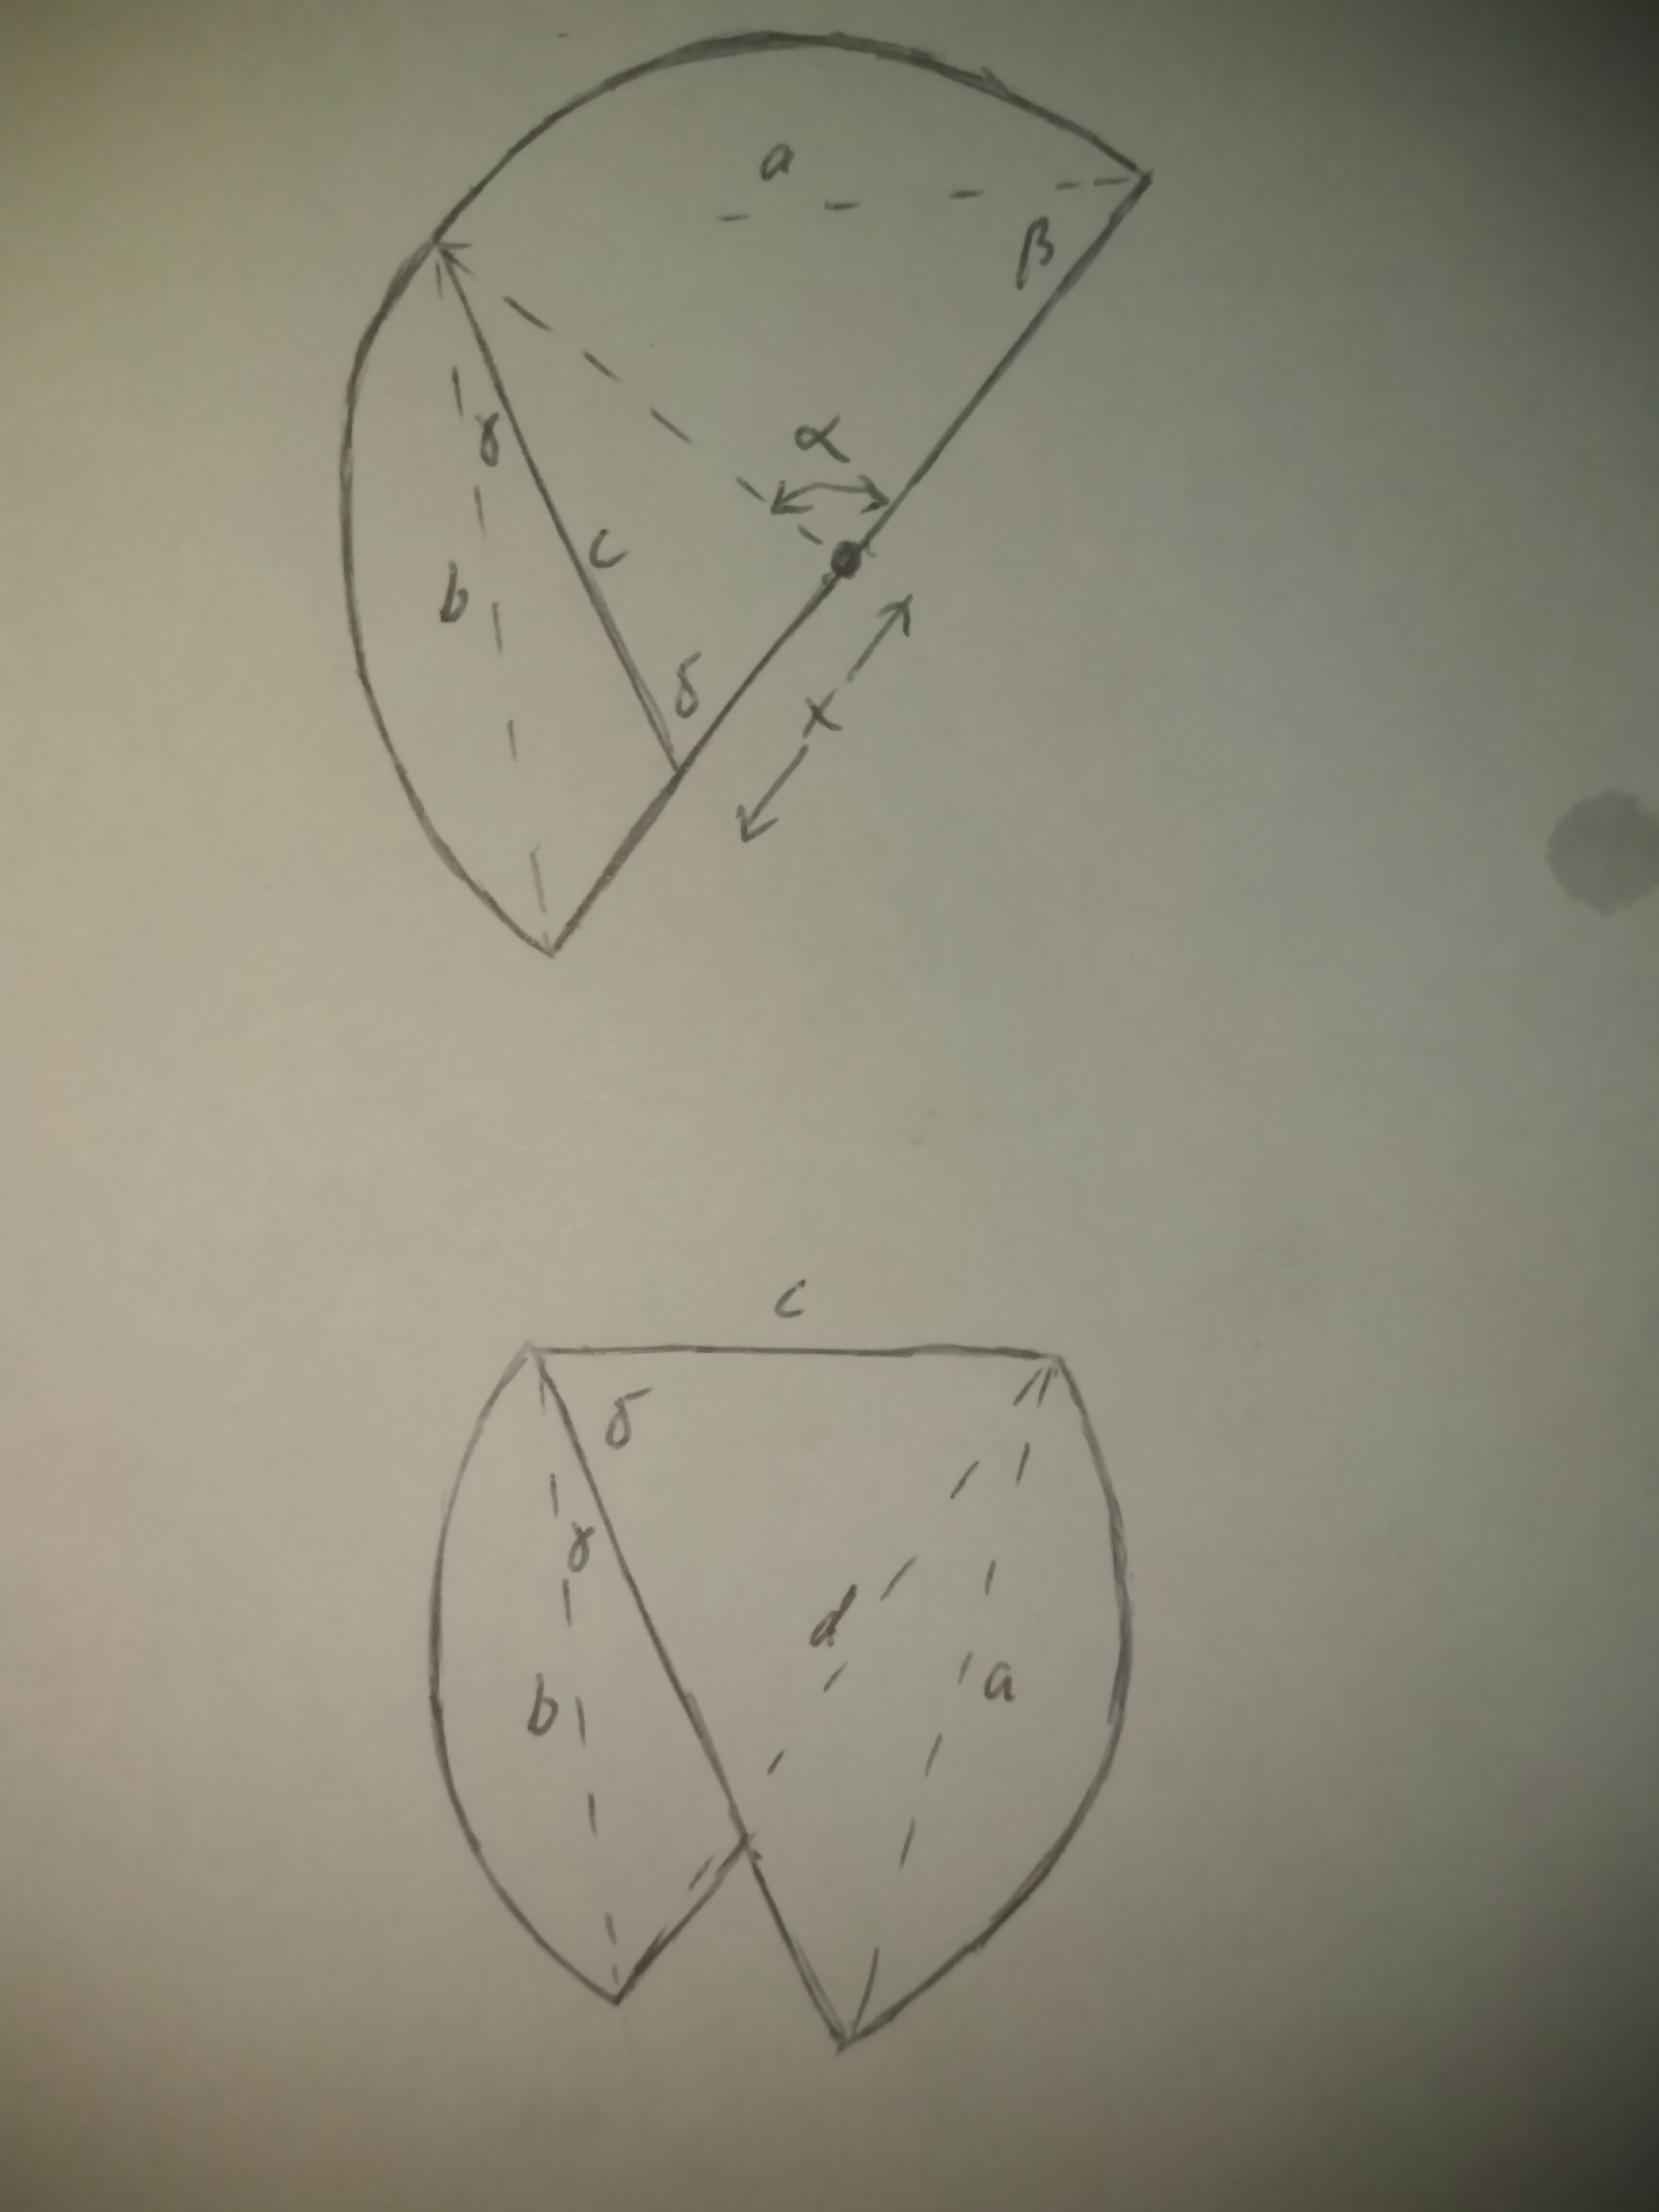 a
β
α
γ
c
b
δ
x
c
δ
γ
d
a
b